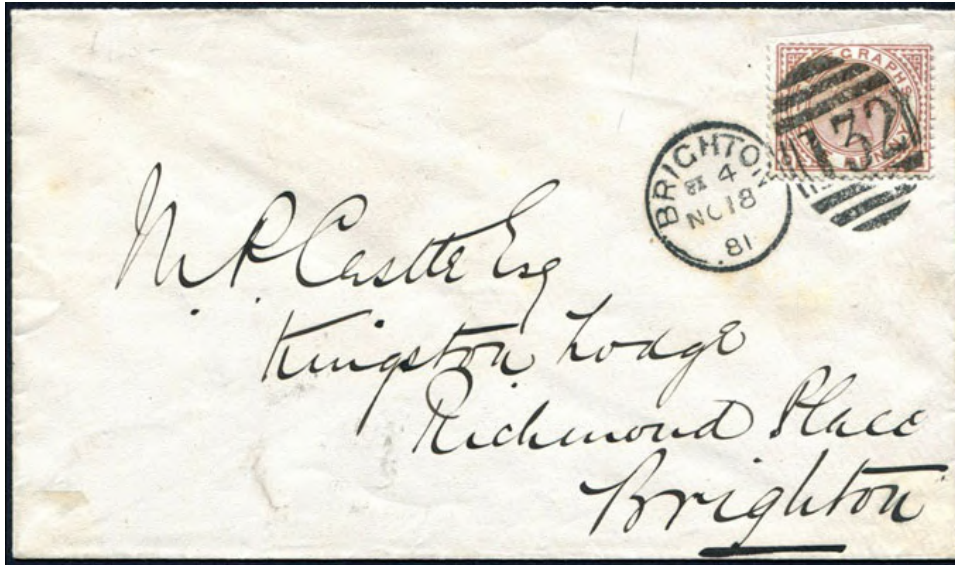 GRAPHS
132
BRIGHTON
4
NO 18
81
M. P. Castle Esq
Kingston Lodge
Richmond Place
Brighton